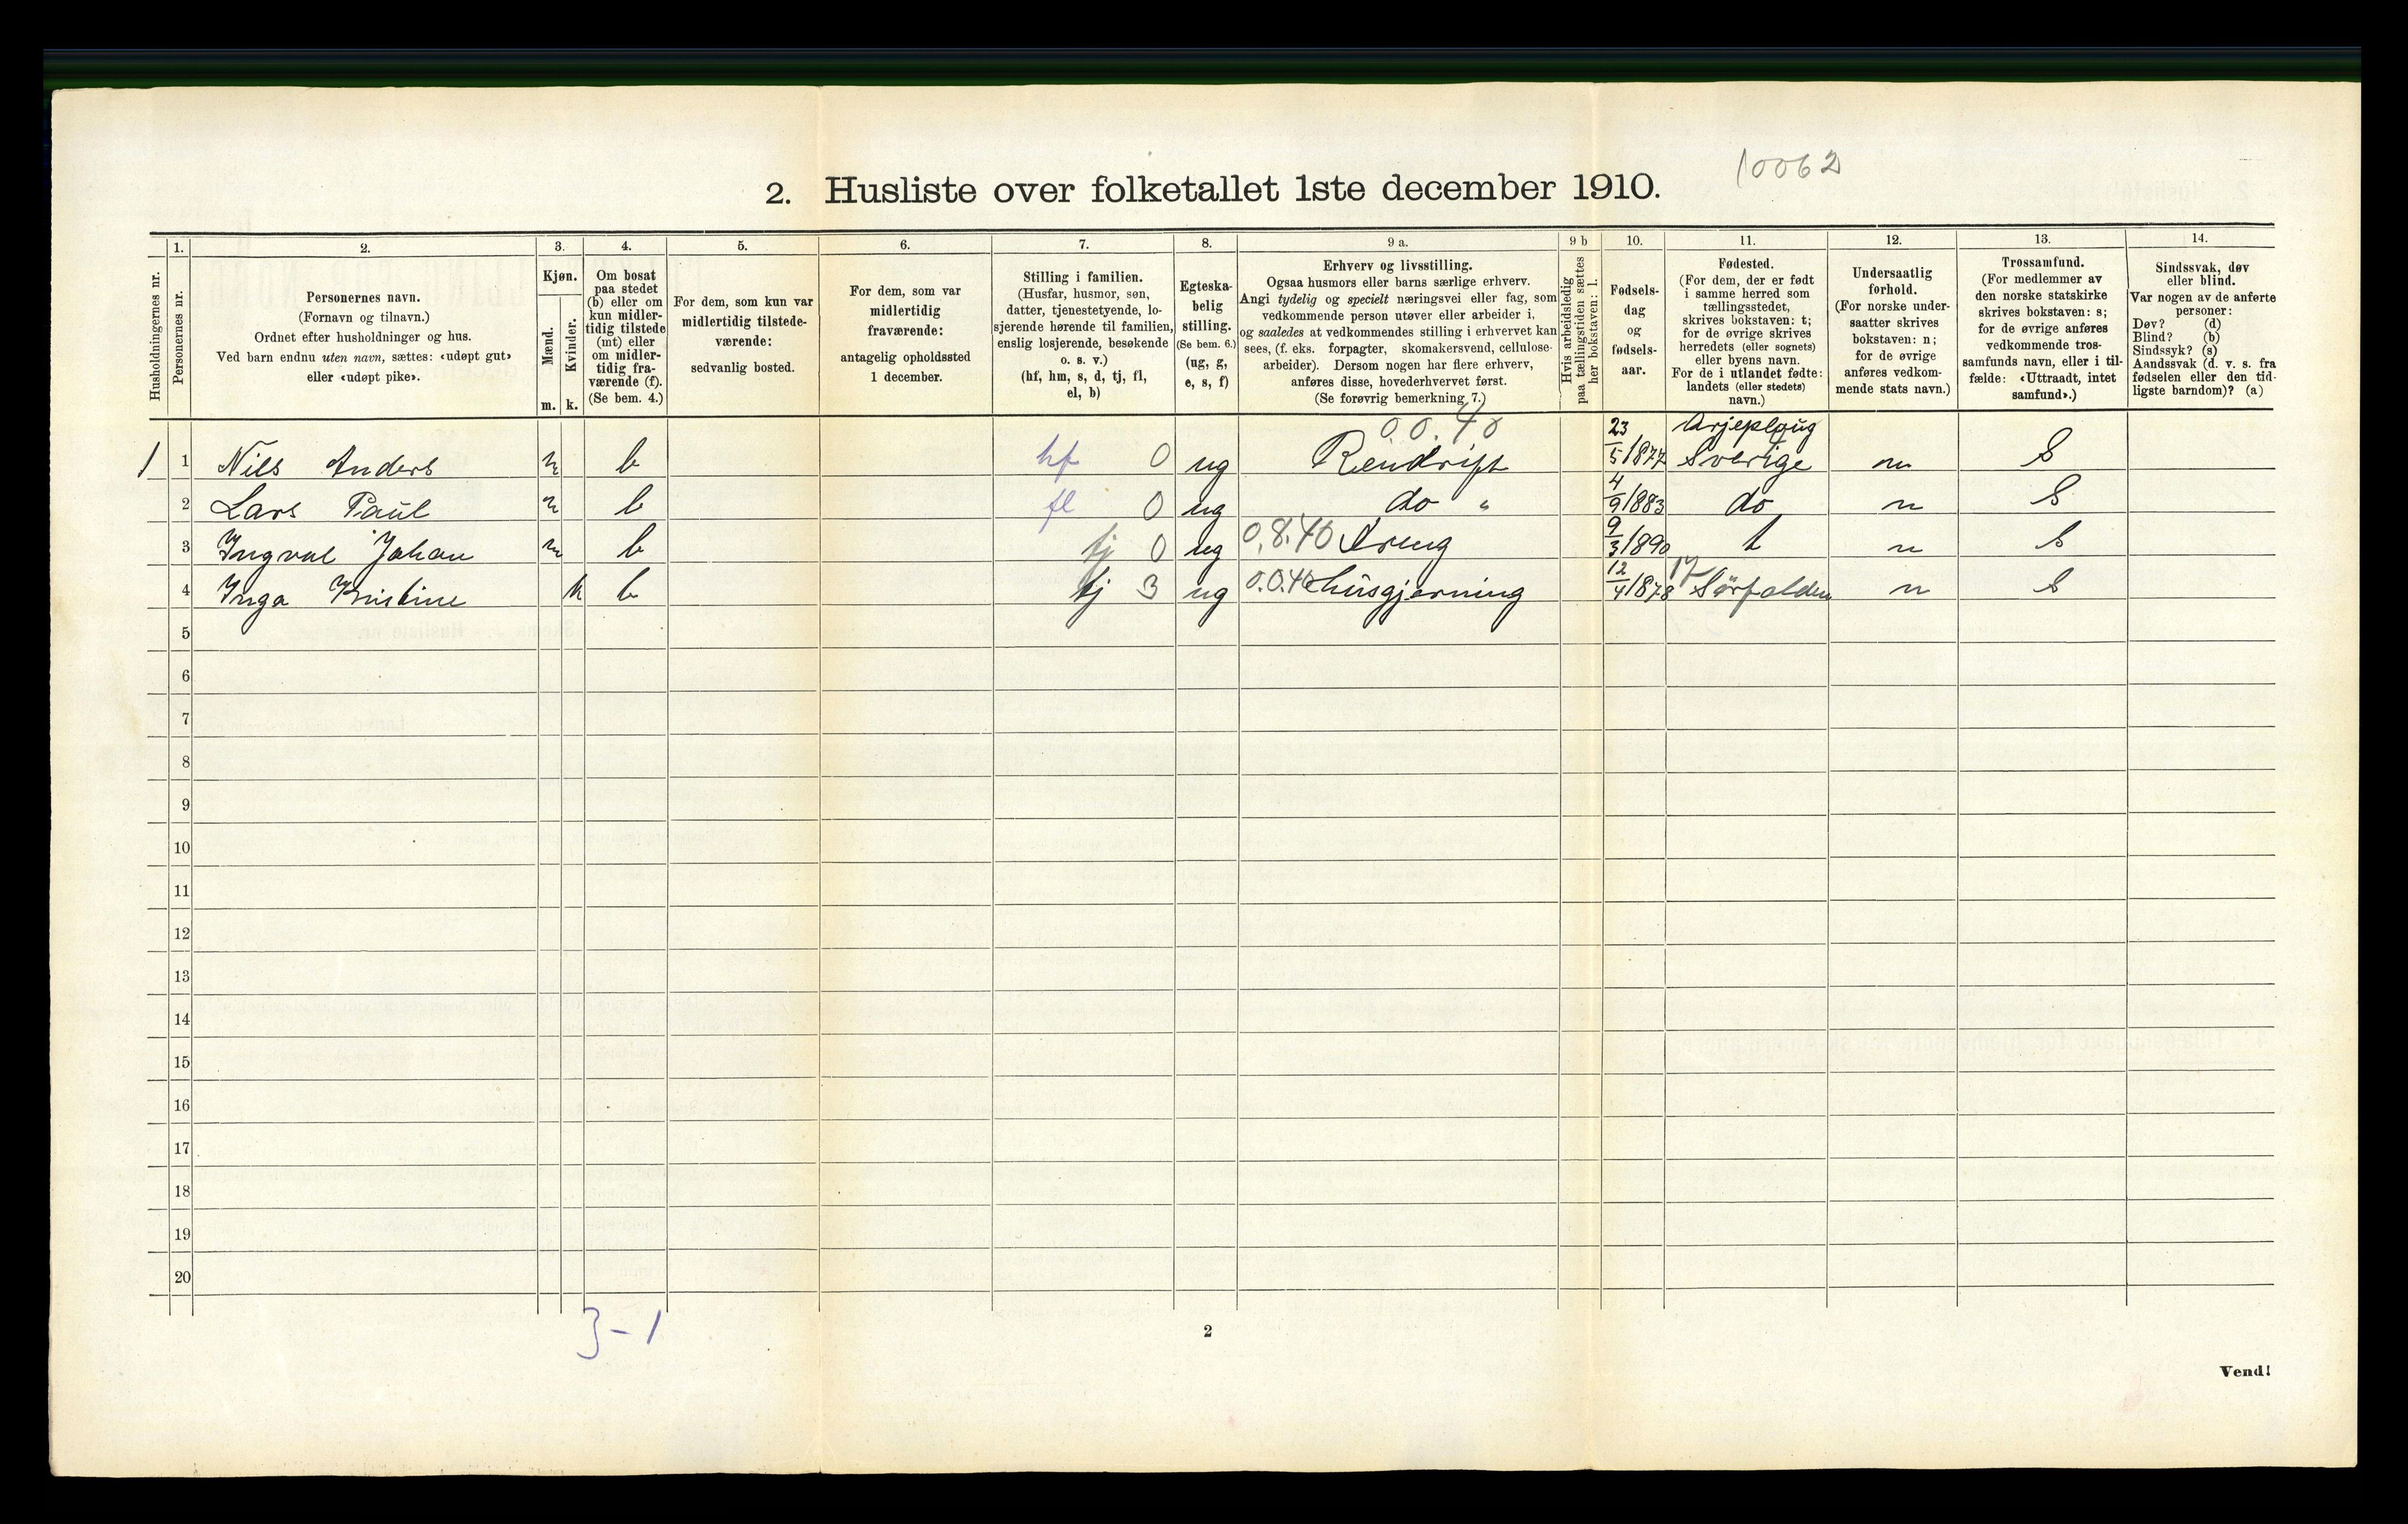 10062
2. Husliste over folketallet 1ste december 1910.
Husholdningernes nr.
1.
Personernes nr.
2.
Personernes navn.
(Fornavn og tilnavn.)
Ordnet efter husholdninger og hus.
Ved barn endnu uten navn, sættes: «udøpt gut»
eller «udøpt pike».
3.
Kjøn.
Mænd.
Kvinder.
m. k.
4.
Om bosat
paa stedet
(b) eller om
kun midler-
tidig tilstede
(mt) eller
om midler-
tidig fra-
værende (f).
(Se bem. 4.)
5.
For dem, som kun var
midlertidig tilstede-
værende:
sedvanlig bosted.
6.
For dem, som var
midlertidig
fraværende:
antagelig opholdssted
1 december.
7.
Stilling i familien.
(Husfar, husmor, søn,
datter, tjenestetyende, lo-
sjerende hørende til familien,
enslig losjerende, besøkende
o. s. v.)
(hf, hm, s, d, tj, fl,
el, b)
8.
Egteska-
belig
stilling.
(Se bem. 6.)
(ug, g,
e, s, f)
9 a.
Erhverv og livsstilling.
Ogsaa husmors eller barns særlige erhverv.
Angi tydelig og specielt næringsvei eller fag, som
vedkommende person utøver eller arbeider i,
og saaledes at vedkommendes stilling i erhvervet kan
sees, (f. eks. forpagter, skomakersvend, cellulose-
arbeider). Dersom nogen har flere erhverv,
anføres disse, hovederhvervet først.
(Se forøvrig bemerkning 7.)
9 b
Hvis arbeidsledig
paa tællingstiden sættes
her bokstaven: l.
10.
Fødsels-
dag
og
fødsels-
aar.
11.
Fødested.
(For dem, der er født
i samme herred som
tællingsstedet,
skrives bokstaven: t;
for de øvrige skrives
herredets (eller sognets)
eller byens navn.
For de i utlandet fødte:
landets (eller stedets)
navn.)
12.
Undersaatlig
forhold.
(For norske under-
saatter skrives
bokstaven: n;
for de øvrige
anføres vedkom-
mende stats navn.)
13.
Trossamfund.
(For medlemmer av
den norske statskirke
skrives bokstaven: s;
for de øvrige anføres
vedkommende tros-
samfunds navn, eller i til-
fælde: «Uttraadt, intet
samfund».)
14.
Sindssvak, døv
eller blind.
Var nogen av de anførte
personer:
Døv? (d)
Blind? (b)
Sindssyk? (s)
Aandssvak (d. v. s. fra
fødselen eller den tid-
ligste barndom)? (a)
0.0.40 23 Arjeploug
1 1 Nils Anders m b hf 0 ug Rendrift 5/1877 Sverige n S
2 Lars Paul m b fl 0 ug do " 4/9 1883 do n S
3 Ingval Johan m b tj 0 ug 0.8.40 Dreng 9/3 1890 t n S
4 Inga Kristine k b tj 3 ug 0.0.40 husgjerning 12/4 1878 17 Sørfolden n S
5
6
7
8
9
10
11
12
13
14
15
16
17
18
19
20
3-1
2
Vend!